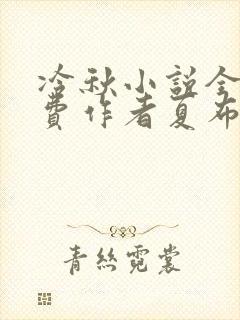 冷秋小説全
費作者夏布
青絲霓裳